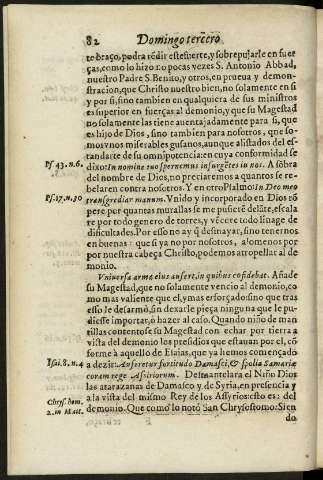 82 Domingo tercero
te braço, podra rēdir este fuerte, y sobrepujarle en fuer
ças, como lo hizo no pocas vezes S. Antonio Abbad,
nuestro Padre S. Benito, y otros, en prueua y demon-
stracion, que Christo nuestro bien, no solamente en si
y por si, sino tambien en qualquiera de sus ministros
es superior en fuerças al demonio, y que su Magestad
no solamente las tiene auentajadamente para si, que
es hijo de Dios, sino tambien para nosotros, que so-
mos vnos miserables gusanos, aunque alistados del es-
tandarte de su omnipotencia: en cuya conformidad se
Ps. 43. n. 6. dixo: In nomine tuo spernemus insurgētes in nos. A sōbra
del nombre de Dios, no preciaremos a quantos se re-
belaren contra nosotros. Y en otro Psalmo: In Deo meo
Ps. 17. n. 30 transgrediar murum. Vnido y incorporado en Dios rō
pere por quantas murallas se me pusierē delāte, escala
re por todo genero de torres, y vēcere todo linage de
dificultades. Por esso no ay q̄ desmayar, sino tenernos
en buenas: que si ya no por nosotros, alomenos por
por nuestra cabeça Christo, podemos atropellar al de
monio.
Vniuersa arma eius aufert, in quibus cōfidebat. Añade
su Magestad, que no solamente vencio al demonio, co
mo mas valiente que el, y mas esforçado: sino que tras
esso le desarmó, sin dexarle pieça ninguna que le pu-
diesse importar, ò hazer al caso. Quando niño de man
tillas contentose su Magestad con echar por tierra a
vista del demonio los presidios que estauan por el, cō
forme à aquello de Esaias, que ya hemos començado
Isai. 8. n. 4 a dezir: Auferetur fortitudo Damasci, & spolia Samariæ
coram rege Assiriorum. Desmantelara el Niño Dios
las atarazanas de Damasco y de Syria, en presencia y
Chrys. hom. a la vista del mismo Rey de los Assyrios: esto es: del
2. in Matt. demonio. Que como lo notó San Chrysostomo: Sien
do